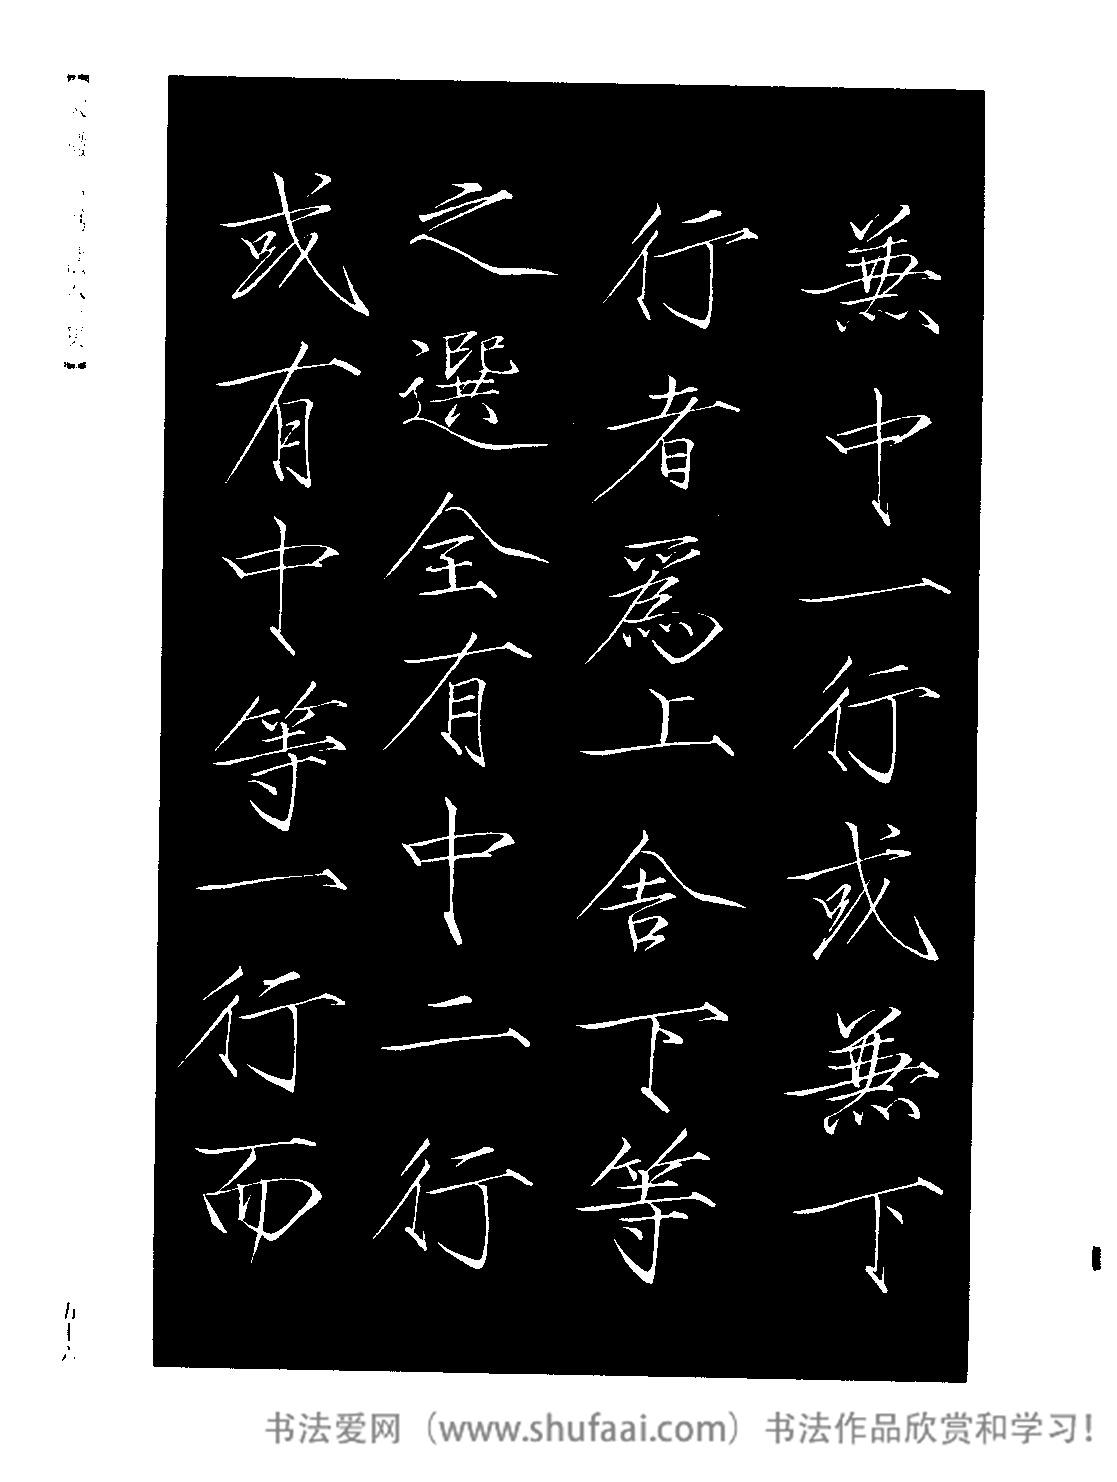 兼中一行或兼下
行者爲上舍下等
之選全有中二行
或有中等一行而
書法爱网（www.shufaai.com）书法作品欣赏和学习！